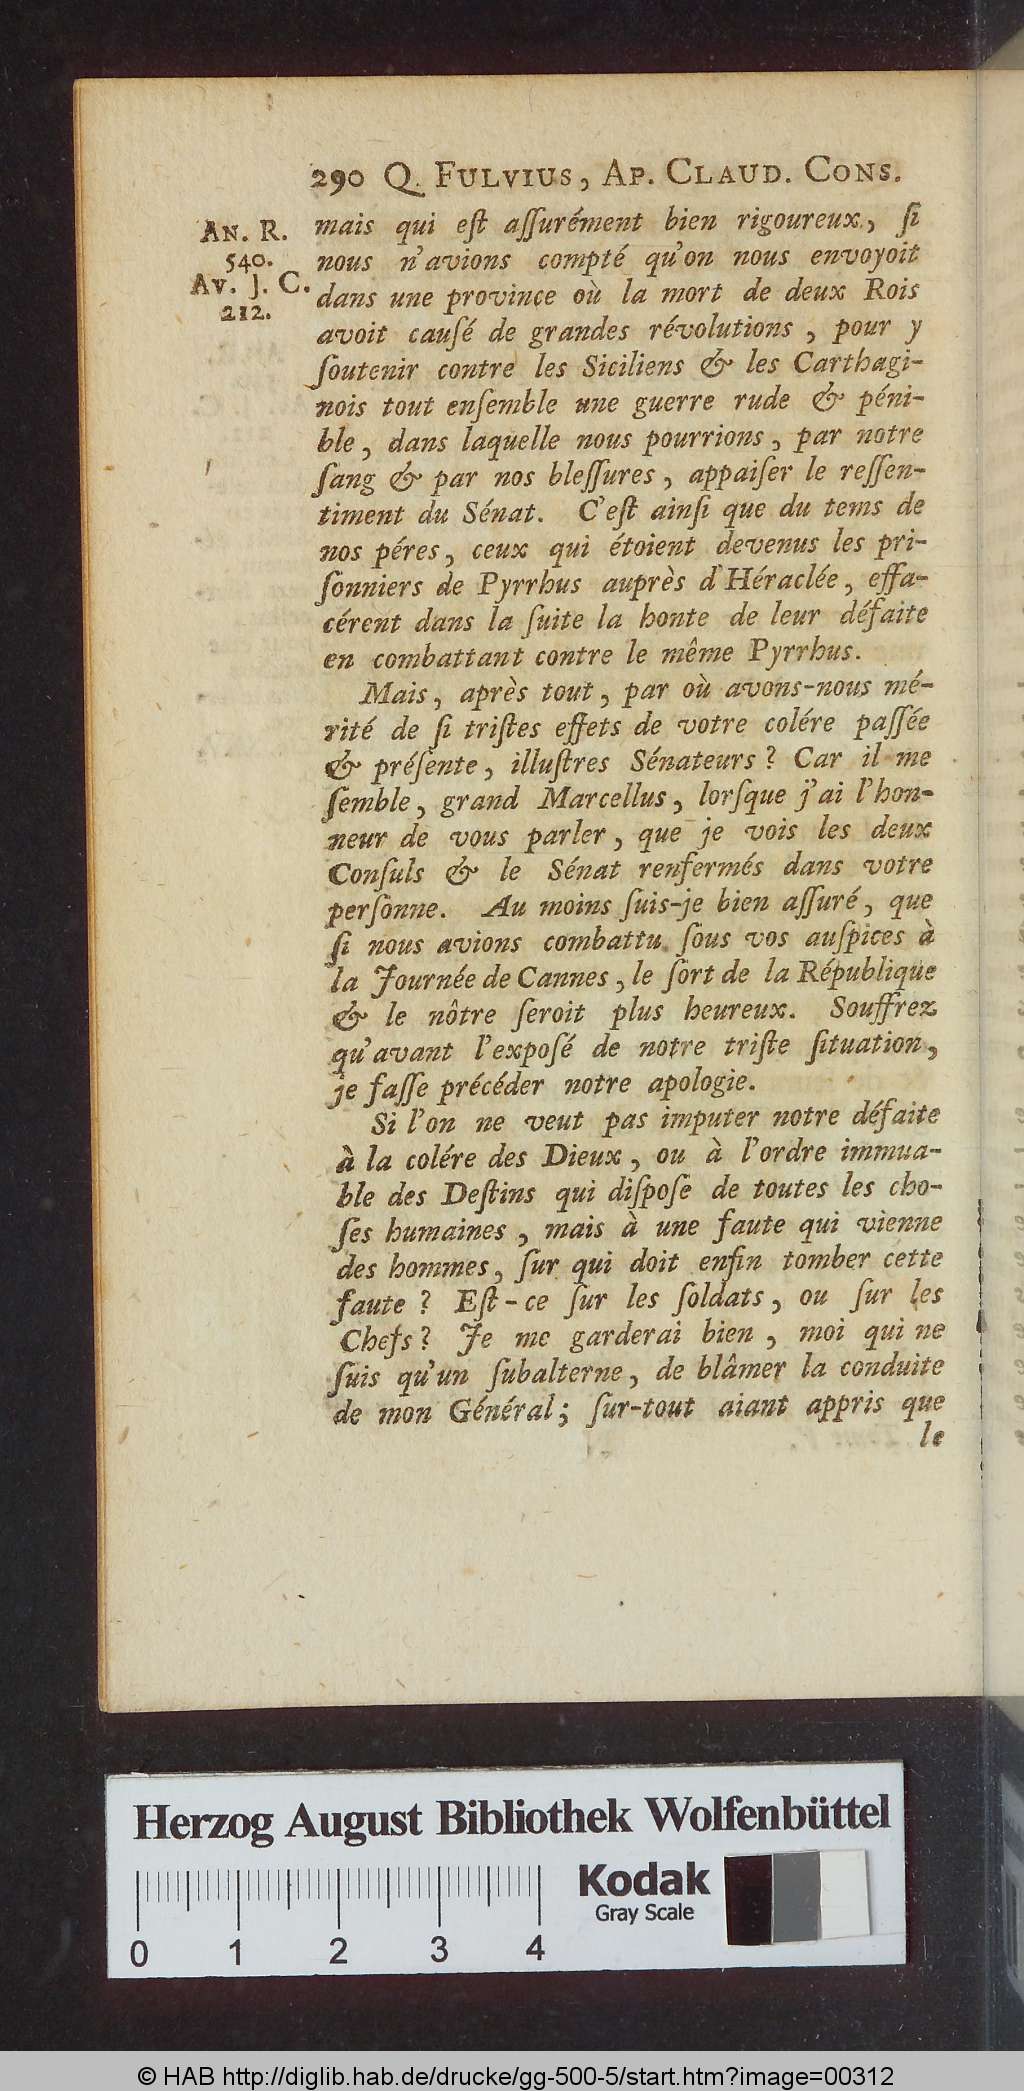 290 Q. FULVIUS, AP. CLAUD. CONS.
AN. R.
540.
AV. J. C.
212.
mais qui eſt aſſurément bien rigoureux, ſi
nous n'avions compté qu'on nous envoyoit
dans une province où la mort de deux Rois
avoit cauſé de grandes révolutions, pour y
ſoutenir contre les Siciliens & les Carthagi-
nois tout enſemble une guerre rude & péni-
ble, dans laquelle nous pourrions, par notre
ſang & par nos bleſſures, appaiſer le reſſen-
timent du Sénat. C'eſt ainſi que du tems de
nos péres, ceux qui étoient devenus les pri-
ſonniers de Pyrrhus auprès d'Héraclée, effa-
cérent dans la ſuite la honte de leur défaite
en combattant contre le même Pyrrhus.
Mais, après tout, par où avons-nous mé-
rité de ſi triſtes effets de votre colére paſſée
& préſente, illuſtres Sénateurs? Car il me
ſemble, grand Marcellus, lorſque j'ai l'hon-
neur de vous parler, que je vois les deux
Conſuls & le Sénat renfermés dans votre
perſonne. Au moins ſuis-je bien aſſuré, que
ſi nous avions combattu ſous vos auſpices à
la Journée de Cannes, le ſort de la République
& le nôtre ſeroit plus heureux. Souffrez
qu'avant l'expoſé de notre triſte ſituation,
je faſſe précéder notre apologie.
Si l'on ne veut pas imputer notre défaite
à la colére des Dieux, ou à l'ordre immua-
ble des Deſtins qui diſpoſe de toutes les cho-
ſes humaines, mais à une faute qui vienne
des hommes, ſur qui doit enfin tomber cette
faute? Eſt-ce ſur les ſoldats, ou ſur les
Chefs? Je me garderai bien, moi qui ne
ſuis qu'un ſubalterne, de blâmer la conduite
de mon Général; ſur-tout aiant appris que
le
Herzog August Bibliothek Wolfenbüttel
Kodak
Gray Scale
0 1 2 3 4
© HAB http://diglib.hab.de/drucke/gg-500-5/start.htm?image=00312